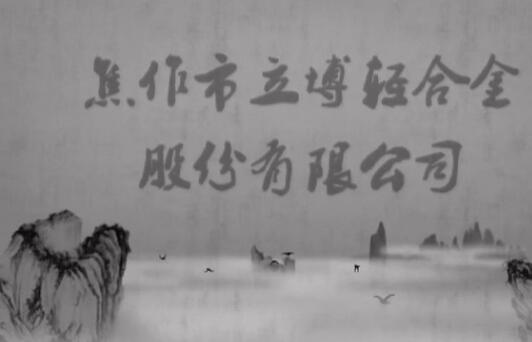 焦作市立博轻合金
股份有限公司